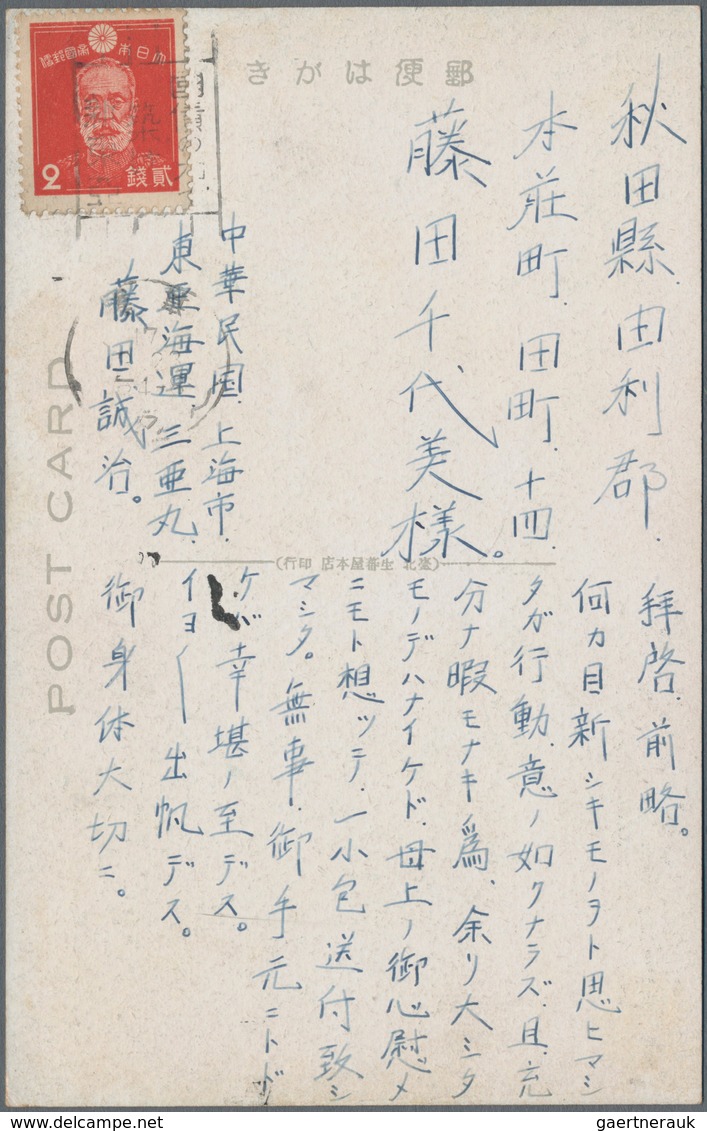 郵便はがき
大日本帝國郵便
2
貳錢
秋田縣.由利郡.
本荘町.田町.十四.
藤田千代美様。
中華民国.上海市.
東亜海運 三亜丸.
藤田誠治。
POST CARD
(臺北 生蕃屋本店 印行)
拝啓.前略。
何カ目新シキモノヲト思ヒマシ
タガ行動.意ノ如クナラズ.且.充
分ナ暇モナキ爲、余リ大シタ
モノデハナイケド.母上ノ御心慰メ
ニモト想ッテ.一小包送付致シ
マシタ。無事.御手元ニトド
ケバ幸堪ノ至デス。
イヨ〱出帆デス。
御身体大切ニ。